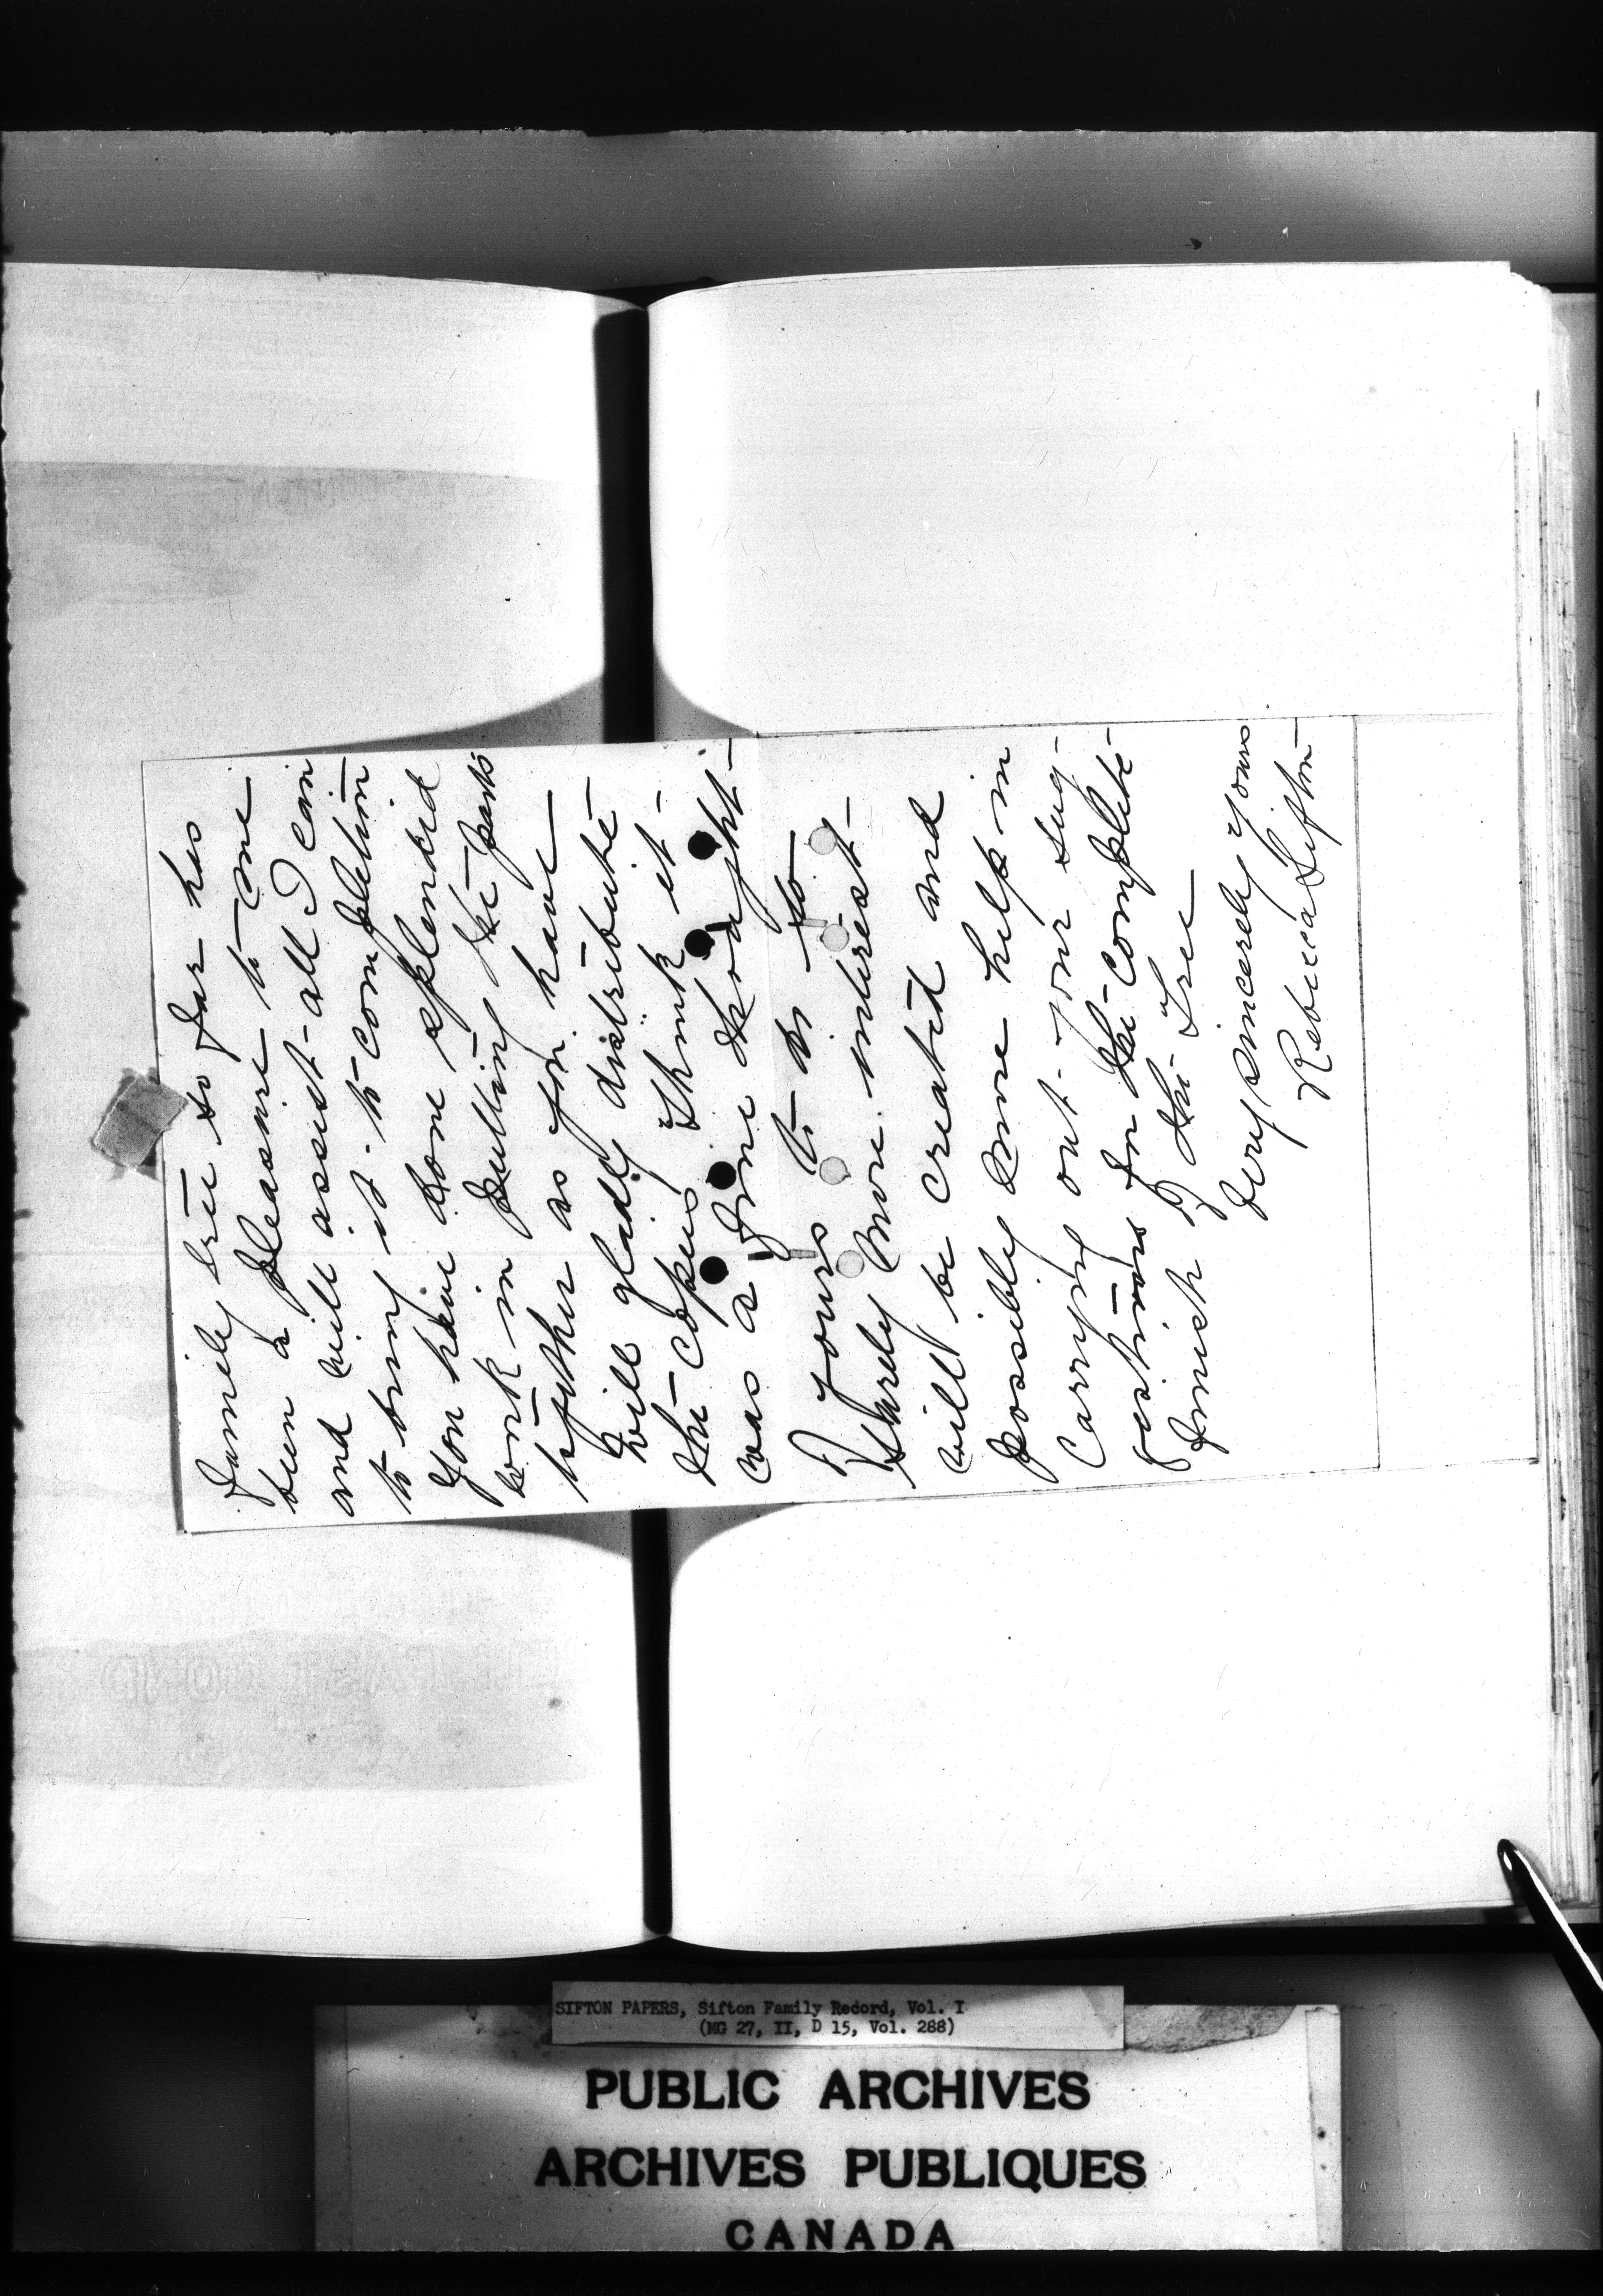 family tree so far has
been a pleasure to me
and will assist all I can
to bring it to completion
You have done splendid
work in putting the parts
together as you have
will gladly distribute
the copies think it
was a fine thought
of yours to do so
surely more interest
will be created and
possibly more help in
carrying out your sug-
gestions for the complete
finish of the Tree
Very sincerely yours
Rebecca Sifton
SIFTON PAPERS, Sifton Family Record, Vol. I
(MG 27, II, D 15, Vol. 288)
PUBLIC ARCHIVES
ARCHIVES PUBLIQUES
CANADA